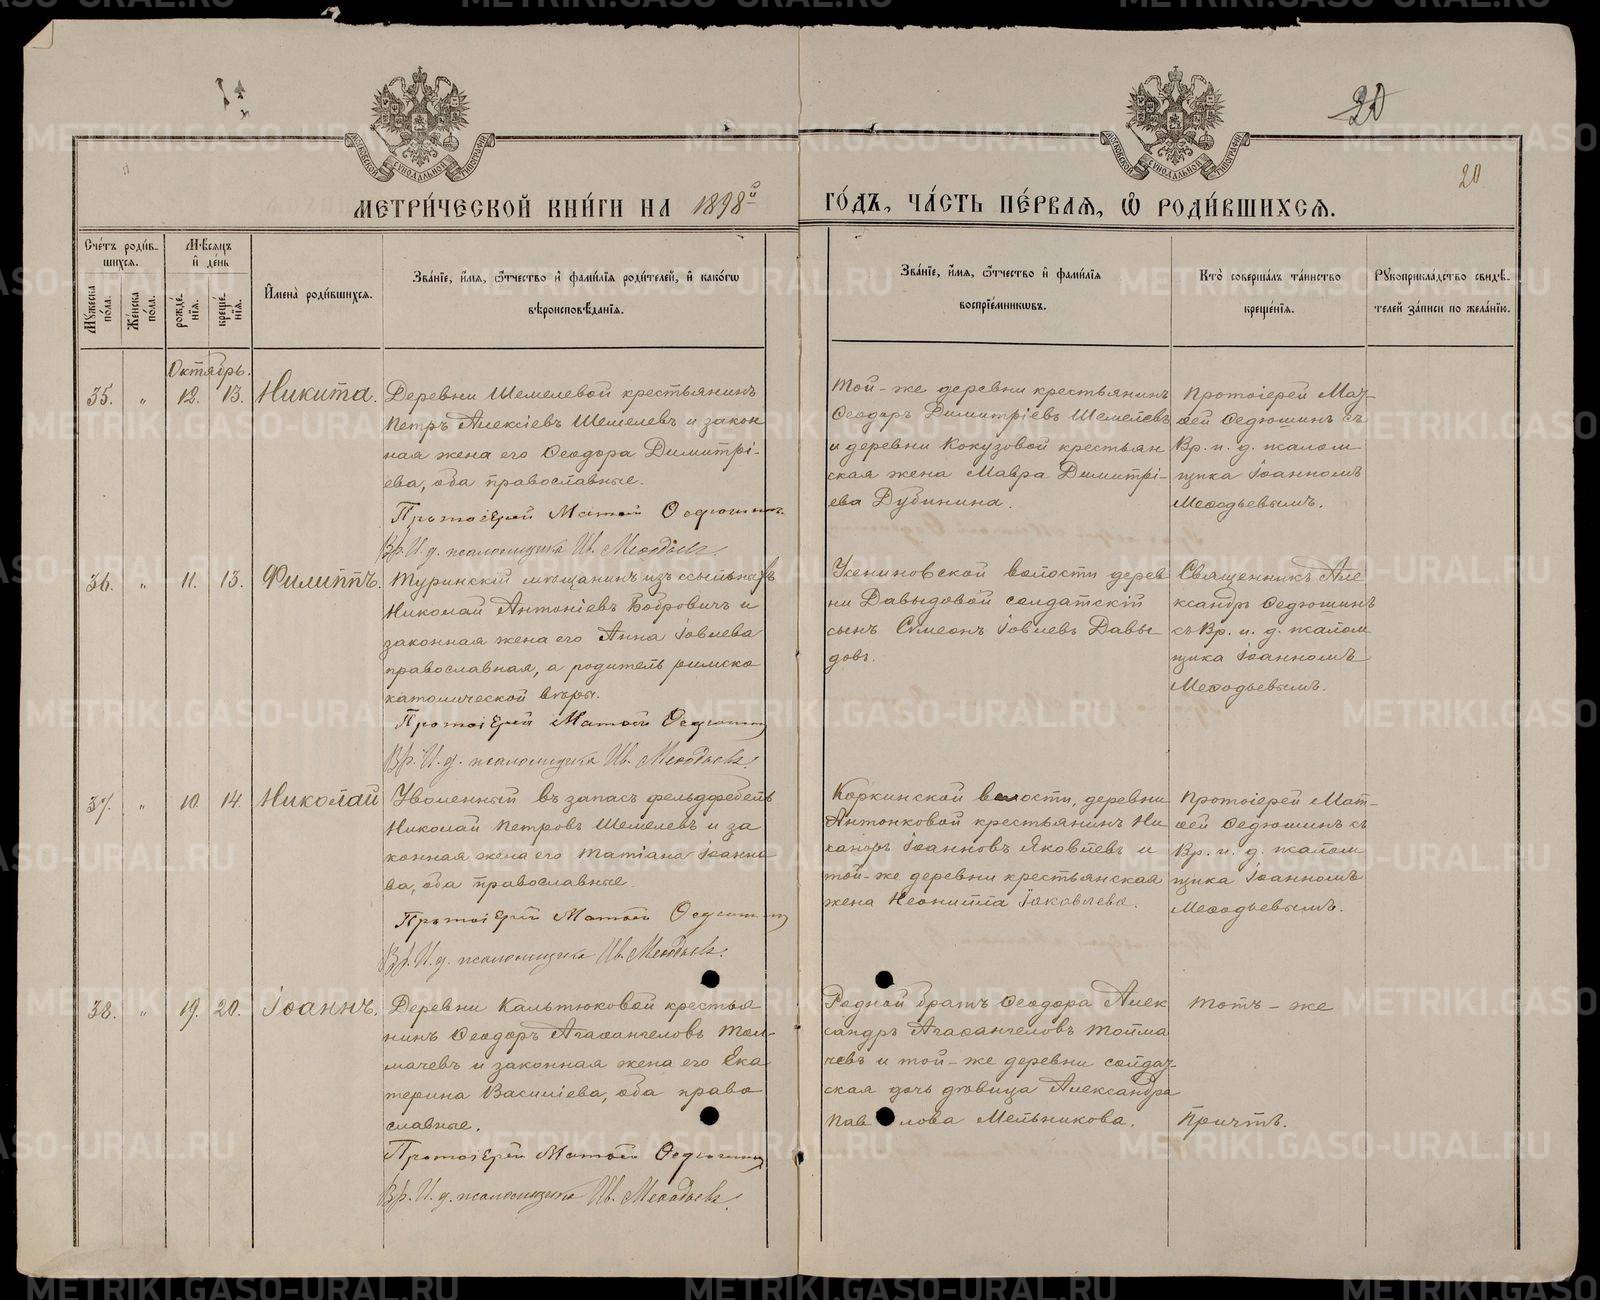 20
20
МЕТРИ́ЧЕСКОЙ КНИ́ГИ НА 1898й
ГО́ДЪ, ЧА́СТЬ ПЕ́РВАЯ, Ѡ РОДИ́ВШИХСЯ.
Сче́тъ роди́в-
шихся.
Мꙋжеска по́ла.
Же́нска по́ла.
Мѣ́сяцъ и҆ де́нь
рожде́-нїя.
креще́-нїя.
И҆мена̀ роди́вшихся.
Зва́нїе, и҆́мя, ѻ҆́тчество и҆ фами́лїя роди́телей, и҆ како́гѡ
вѣроисповѣ́данїя.
Зва́нїе, и҆́мя, ѻ҆́тчество и҆ фами́лїя
воспрїе́мникѡвъ.
Кто̀ соверша́лъ та́инство
креще́нїя.
Рꙋкоприкла́дство свидѣ́-
телей за́писи по жела́нїю.
Октябрь.
35. „ 12. 13. Никита.
Деревни Шемелевой крестьянинъ
Петръ Алексіевъ Шемелевъ и закон
ная жена его Ѳеодора Димитрі-
ева, оба православные.
Протоіерей Матѳей Ѳедюшинъ
Вр. И. д. псаломщика Ив. Меѳодьевъ.
Той-же деревни крестьянинъ
Ѳеодоръ Димитріевъ Шемелевъ
и деревни Кокузовой крестьян
ская жена Мавра Димитрі-
ева Дубинина.
Протоіерей Мат-
ѳей Ѳедюшинъ съ
Вр. и. д. псалом
щика Іоанномъ
Меѳодьевымъ.
36. „ 11. 13. Филиппъ.
Туринскій мѣщанинъ изъ ссыльныхъ
Николай Антоніевъ Бобровичъ и
законная жена его Анна Іовлева
православная, а родитель римско
католической вѣры.
Протоіерей Матѳей Ѳедюшинъ
Вр. И. д. псаломщика Ив. Меѳодьевъ.
Усениновской волости дерев
ни Давыдовой солдатскій
сынъ Симеонъ Іовлевъ Давы
довъ.
Священникъ Але
ксандръ Ѳедюшинъ
съ Вр. и. д. псалом
щика Іоанномъ
Меѳодьевымъ.
37. „ 10. 14. Николай
Уволенный въ запасъ фельдфебель
Николай Петровъ Шемелевъ и за
конная жена его Татіана Іоанно
ва, оба православные.
Протоіерей Матѳей Ѳедюшинъ
Вр. И. д. псаломщика Ив. Меѳодьевъ.
Коркинской волости, деревни
Антонковой крестьянинъ Ни
каноръ Іоанновъ Яковлевъ и
той-же деревни крестьянская
жена Неонилла Іаковлева.
Протоіерей Мат-
ѳей Ѳедюшинъ съ
Вр. и. д. псалом
щика Іоанномъ
Меѳодьевымъ.
38. „ 19. 20. Іоаннъ.
Деревни Кальтюковой крестья
нинъ Ѳеодоръ Агаѳангеловъ Тол-
мачевъ и законная жена его Ека
терина Василіева, оба право
славные.
Протоіерей Матѳей Ѳедюшинъ
Вр. И. д. псаломщика Ив. Меѳодьевъ.
Родной братъ Ѳеодора Алек
сандръ Агаѳангеловъ Толма
чевъ и той-же деревни солдат-
ская дочь дѣвица Александра
Павлова Мельникова.
Тотъ-же
Причтъ.
METRIKI.GASO-URAL.RU